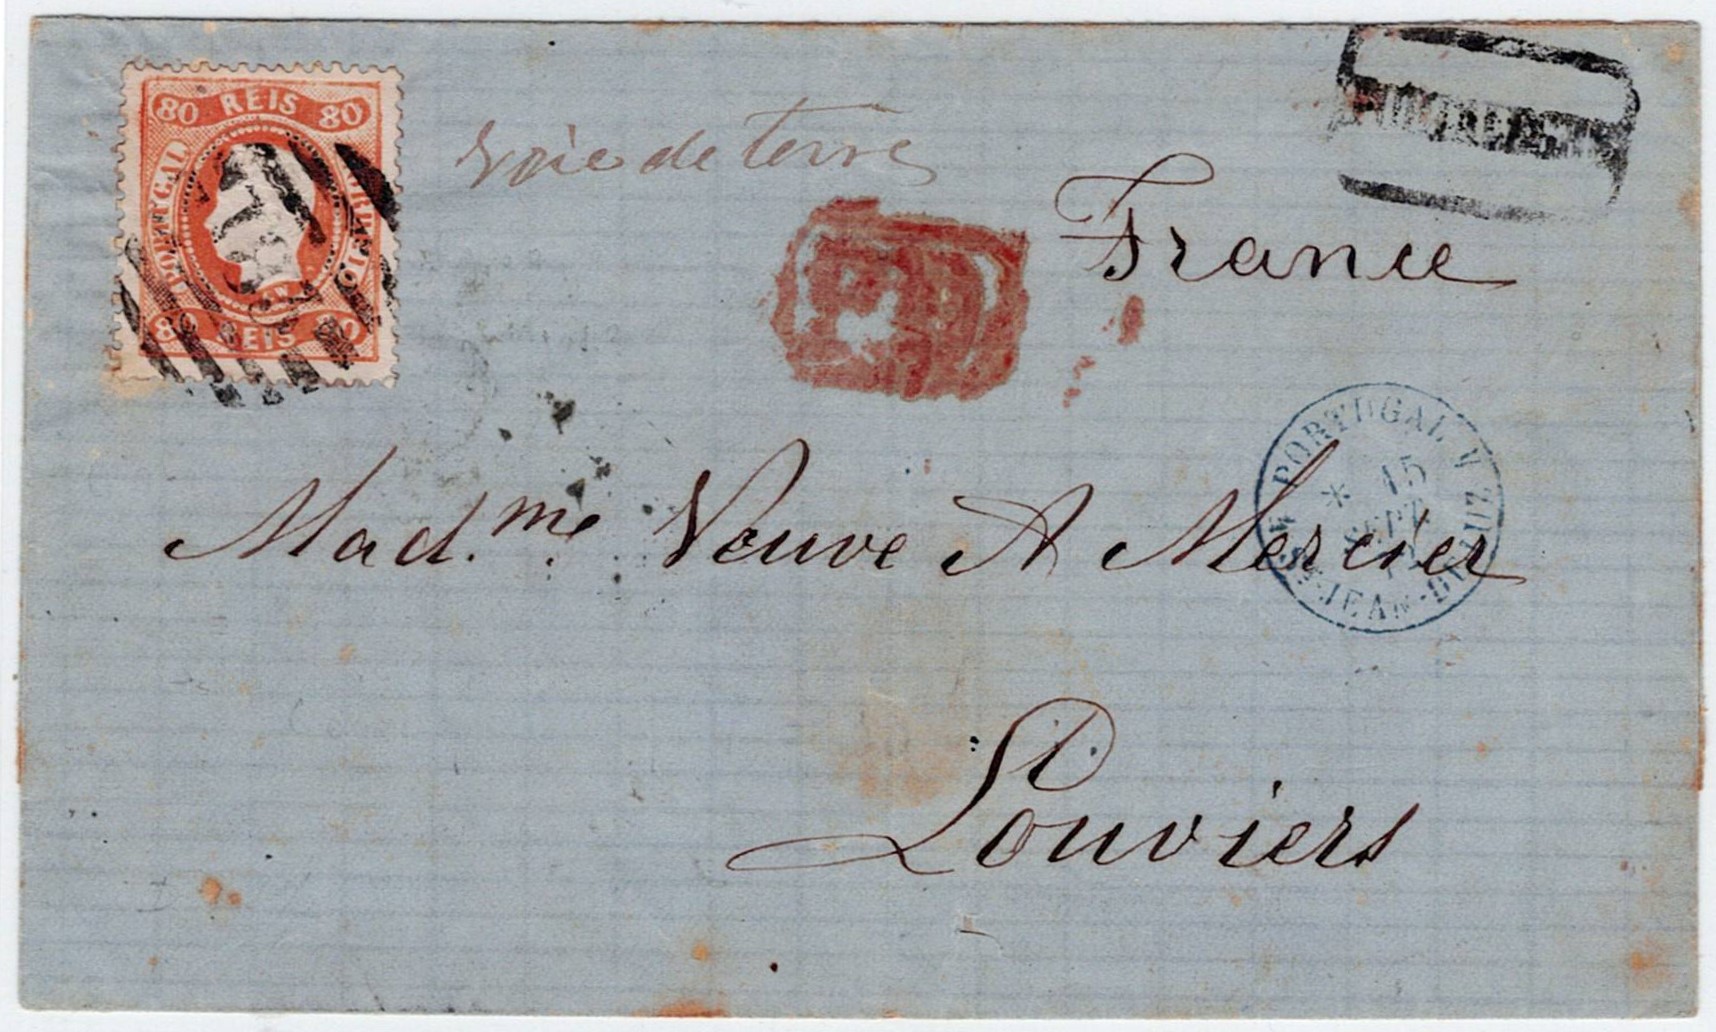 80 REIS 80
PORTUGAL
CORREIO
80 REIS 80
voie de terre
PD
France
PORTUGAL
15
SEPT
ST-JEAN-DE-LUZ
Mad.me Veuve A Mercier
Louviers